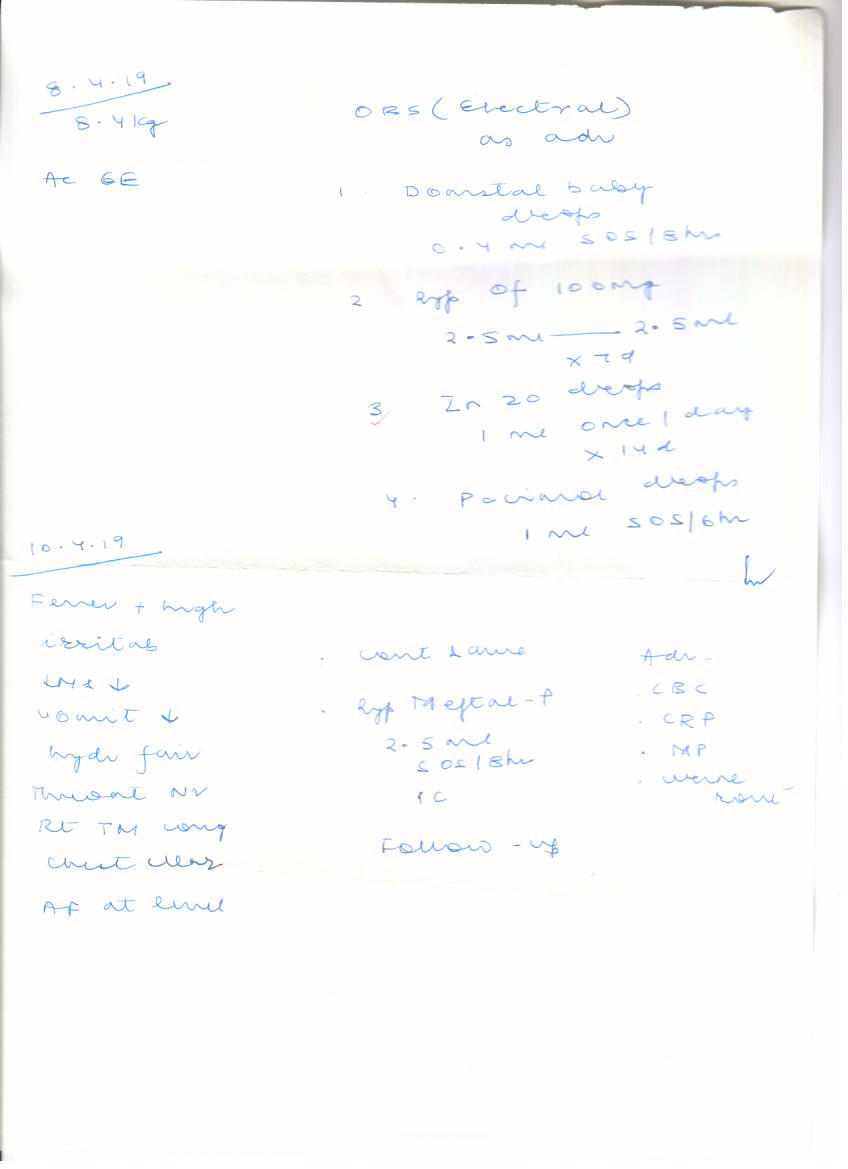 8.4.19
8.4 kg
Ac GE
ORS (Electral)
as adv
1. Domstal baby
drops
0.4 ml SOS/8hr
2 Syp Of 100mg
2.5ml — 2.5ml
x 7d
3 Zn 20 drops
1 ml once / day
x 14d
4. Pacimol drops
1 ml SOS/6hr
10.4.19
Fever + high
irritab
↓
vomit ↓
hydr fair
Throat
Rt TM cong
chest clear
AF at level
. cont same
. Syp Meftal-P
2.5 ml
SOS/8hr
Follow-up
Adv -
. CBC
. CRP
. MP
. urine
rout